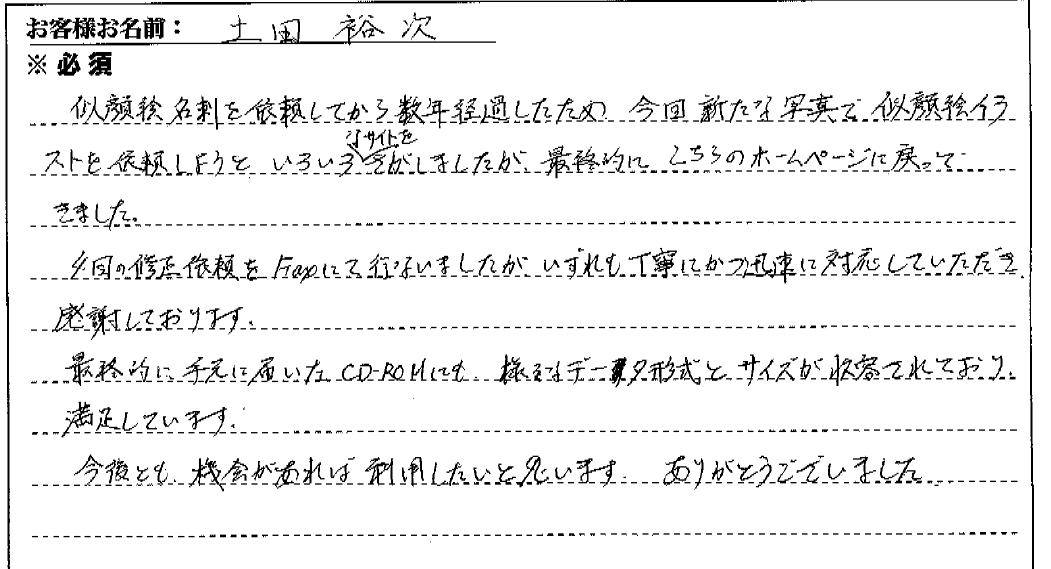 お客様お名前： 土田 裕次
※必須
似顔絵名刺を依頼してから数年経過したため、今回新たな写真で似顔絵イラ
ストを依頼しようと、いろいろなサイトをさがしましたが、最終的にこちらのホームページに戻って
きました。
夕回の修正依頼をFaxにて行ないましたが、いずれも丁寧にかつ迅速に対応していただき
感謝しております。
最終的に手元に届いたCD-ROMにも、様々なデータ形式とサイズが収容されており、
満足しています。
今後とも、機会があれば利用したいと思います。ありがとうございました